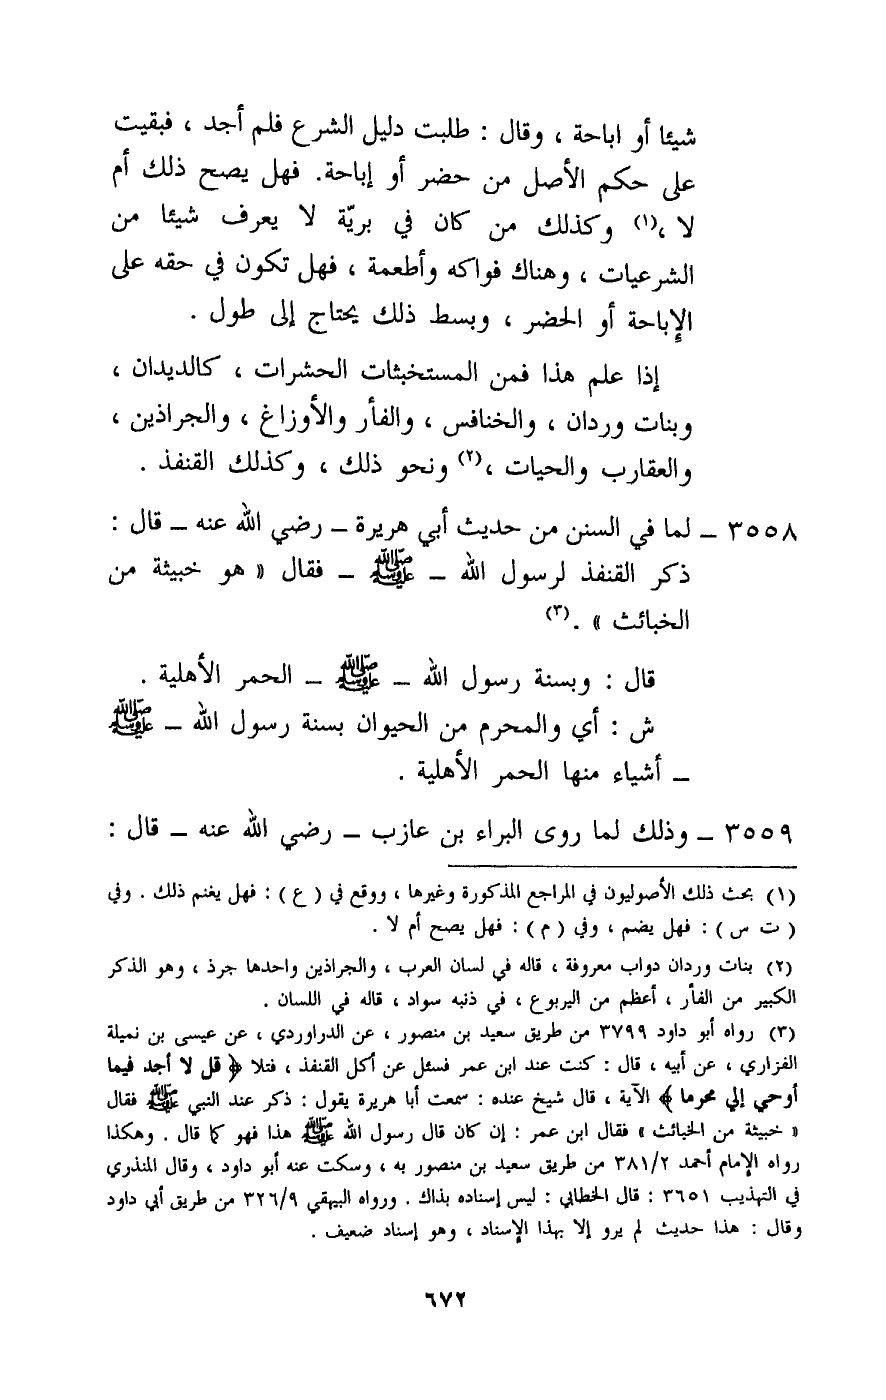 شيئا أو اباحة ، وقال : طلبت دليل الشرع فلم أجد ، فبقيت
على حكم الأصل من حضر أو إباحة. فهل يصح ذلك أم
لا ،(١) وكذلك من كان في بريّة لا يعرف شيئا من
الشرعيات ، وهناك فواكه وأطعمة ، فهل تكون في حقه على
الإباحة أو الحضر ، وبسط ذلك يحتاج إلى طول .
إذا علم هذا فمن المستخبثات الحشرات ، كالديدان ،
وبنات وردان ، والخنافس ، والفأر والأوزاغ ، والجراذين ،
والعقارب والحيات ،(٢) ونحو ذلك ، وكذلك القنفذ .
٣٥٥٨ – لما في السنن من حديث أبي هريرة – رضي الله عنه – قال :
ذكر القنفذ لرسول الله – ﷺ – فقال « هو خبيثة من
الخبائث » .(٣)
قال : وبسنة رسول الله – ﷺ – الحمر الأهلية .
ش : أي والمحرم من الحيوان بسنة رسول الله – ﷺ
– أشياء منها الحمر الأهلية .
٣٥٥٩ – وذلك لما روى البراء بن عازب – رضي الله عنه – قال :
(١) بحث ذلك الأصوليون في المراجع المذكورة وغيرها ، ووقع في ( ع ) : فهل يغنم ذلك . وفي
( ت س ) : فهل يضم ، وفي ( م ) : فهل يصح أم لا .
(٢) بنات وردان دواب معروفة ، قاله في لسان العرب ، والجراذين واحدها جرذ ، وهو الذكر
الكبير من الفأر ، أعظم من اليربوع ، في ذنبه سواد ، قاله في اللسان .
(٣) رواه أبو داود ٣٧٩٩ من طريق سعيد بن منصور ، عن الدراوردي ، عن عيسى بن نميلة
الفزاري ، عن أبيه ، قال : كنت عند ابن عمر فسئل عن أكل القنفذ ، فتلا ﴿ قل لا أجد فيما
أوحي إلي محرما ﴾ الآية ، قال شيخ عنده : سمعت أبا هريرة يقول : ذكر عند النبي ﷺ فقال
« خبيثة من الخبائث » فقال ابن عمر : إن كان قال رسول الله ﷺ هذا فهو كما قال . وهكذا
رواه الإمام أحمد ٣٨١/٢ من طريق سعيد بن منصور به ، وسكت عنه أبو داود ، وقال المنذري
في التهذيب ٣٦٥١ : قال الخطابي : ليس إسناده بذاك . ورواه البيهقي ٣٢٦/٩ من طريق أبي داود
وقال : هذا حديث لم يرو إلا بهذا الإسناد ، وهو إسناد ضعيف .
٦٧٢